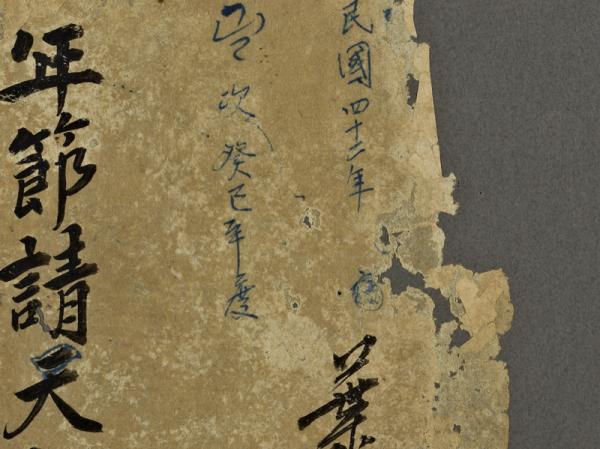 民國四十二年
葉
岁次癸巳年度
年節請天